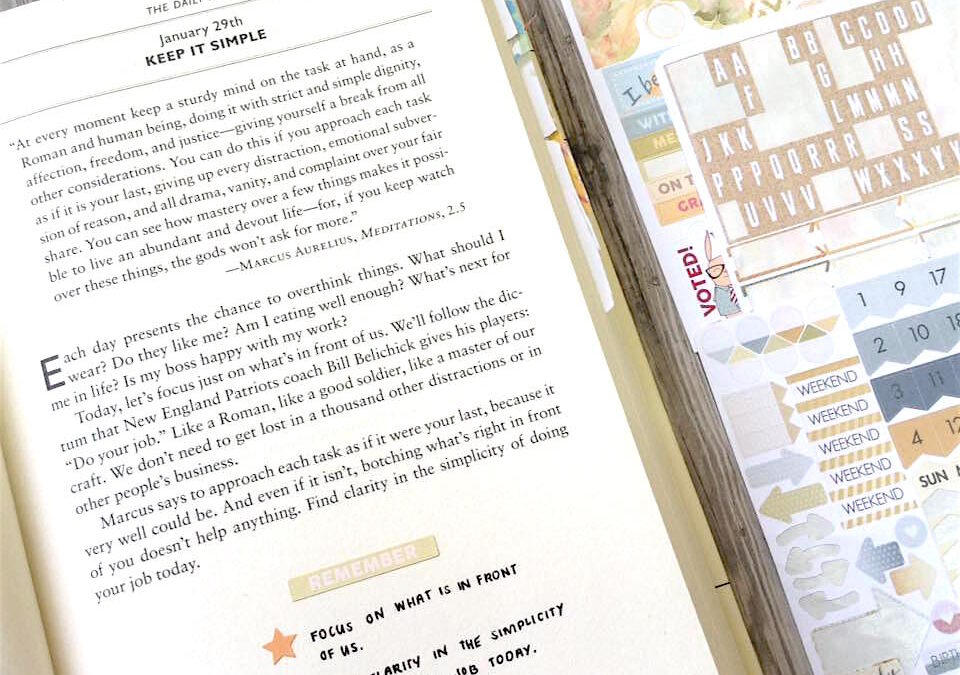 THE DAILY
January 29th
KEEP IT SIMPLE
“At every moment keep a sturdy mind on the task at hand, as a
Roman and human being, doing it with strict and simple dignity,
affection, freedom, and justice—giving yourself a break from all
other considerations. You can do this if you approach each task
as if it is your last, giving up every distraction, emotional subver-
sion of reason, and all drama, vanity, and complaint over your fair
share. You can see how mastery over a few things makes it possi-
ble to live an abundant and devout life—for, if you keep watch
over these things, the gods won’t ask for more.”
—MARCUS AURELIUS, MEDITATIONS, 2.5
Each day presents the chance to overthink things. What should I
wear? Do they like me? Am I eating well enough? What’s next for
me in life? Is my boss happy with my work?
Today, let’s focus just on what’s in front of us. We’ll follow the dic-
tum that New England Patriots coach Bill Belichick gives his players:
“Do your job.” Like a Roman, like a good soldier, like a master of our
craft. We don’t need to get lost in a thousand other distractions or in
other people’s business.
Marcus says to approach each task as if it were your last, because it
very well could be. And even if it isn’t, botching what’s right in front
of you doesn’t help anything. Find clarity in the simplicity of doing
your job today.
REMEMBER
FOCUS ON WHAT IS IN FRONT
OF US.
CLARITY IN THE SIMPLICITY
JOB TODAY.
I be
WIT
ME
ON T
GR
VOTED!
AA BB CCDDD
F G HH
JKK LMMMN
PPPQQRRR SS
UVVV WXXXYY
1 9 17
2 10 18
3 11
4 12
WEEKEND
WEEKEND
WEEKEND
WEEKEND
WEEKEND
SUN M
BIRTH